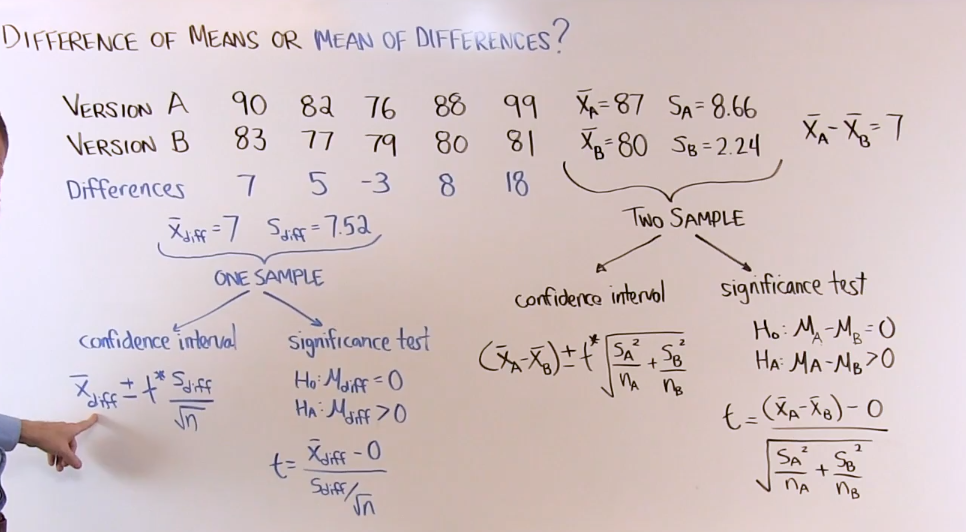 DIFFERENCE OF MEANS OR MEAN OF DIFFERENCES?
VERSION A 90 82 76 88 99
VERSION B 83 77 79 80 81
Differences 7 5 -3 8 18
x̄A=87 SA=8.66
x̄B=80 SB=2.24
x̄A-x̄B=7
x̄diff=7 Sdiff=7.52
ONE SAMPLE
confidence interval
x̄diff ± t* Sdiff/√n
significance test
H₀: Mdiff=0
HA: Mdiff>0
t = (x̄diff - 0)/(Sdiff/√n)
TWO SAMPLE
confidence interval
(x̄A-x̄B) ± t* √(SA²/nA + SB²/nB)
significance test
H₀: MA-MB=0
HA: MA-MB>0
t = ((x̄A-x̄B) - 0)/√(SA²/nA + SB²/nB)